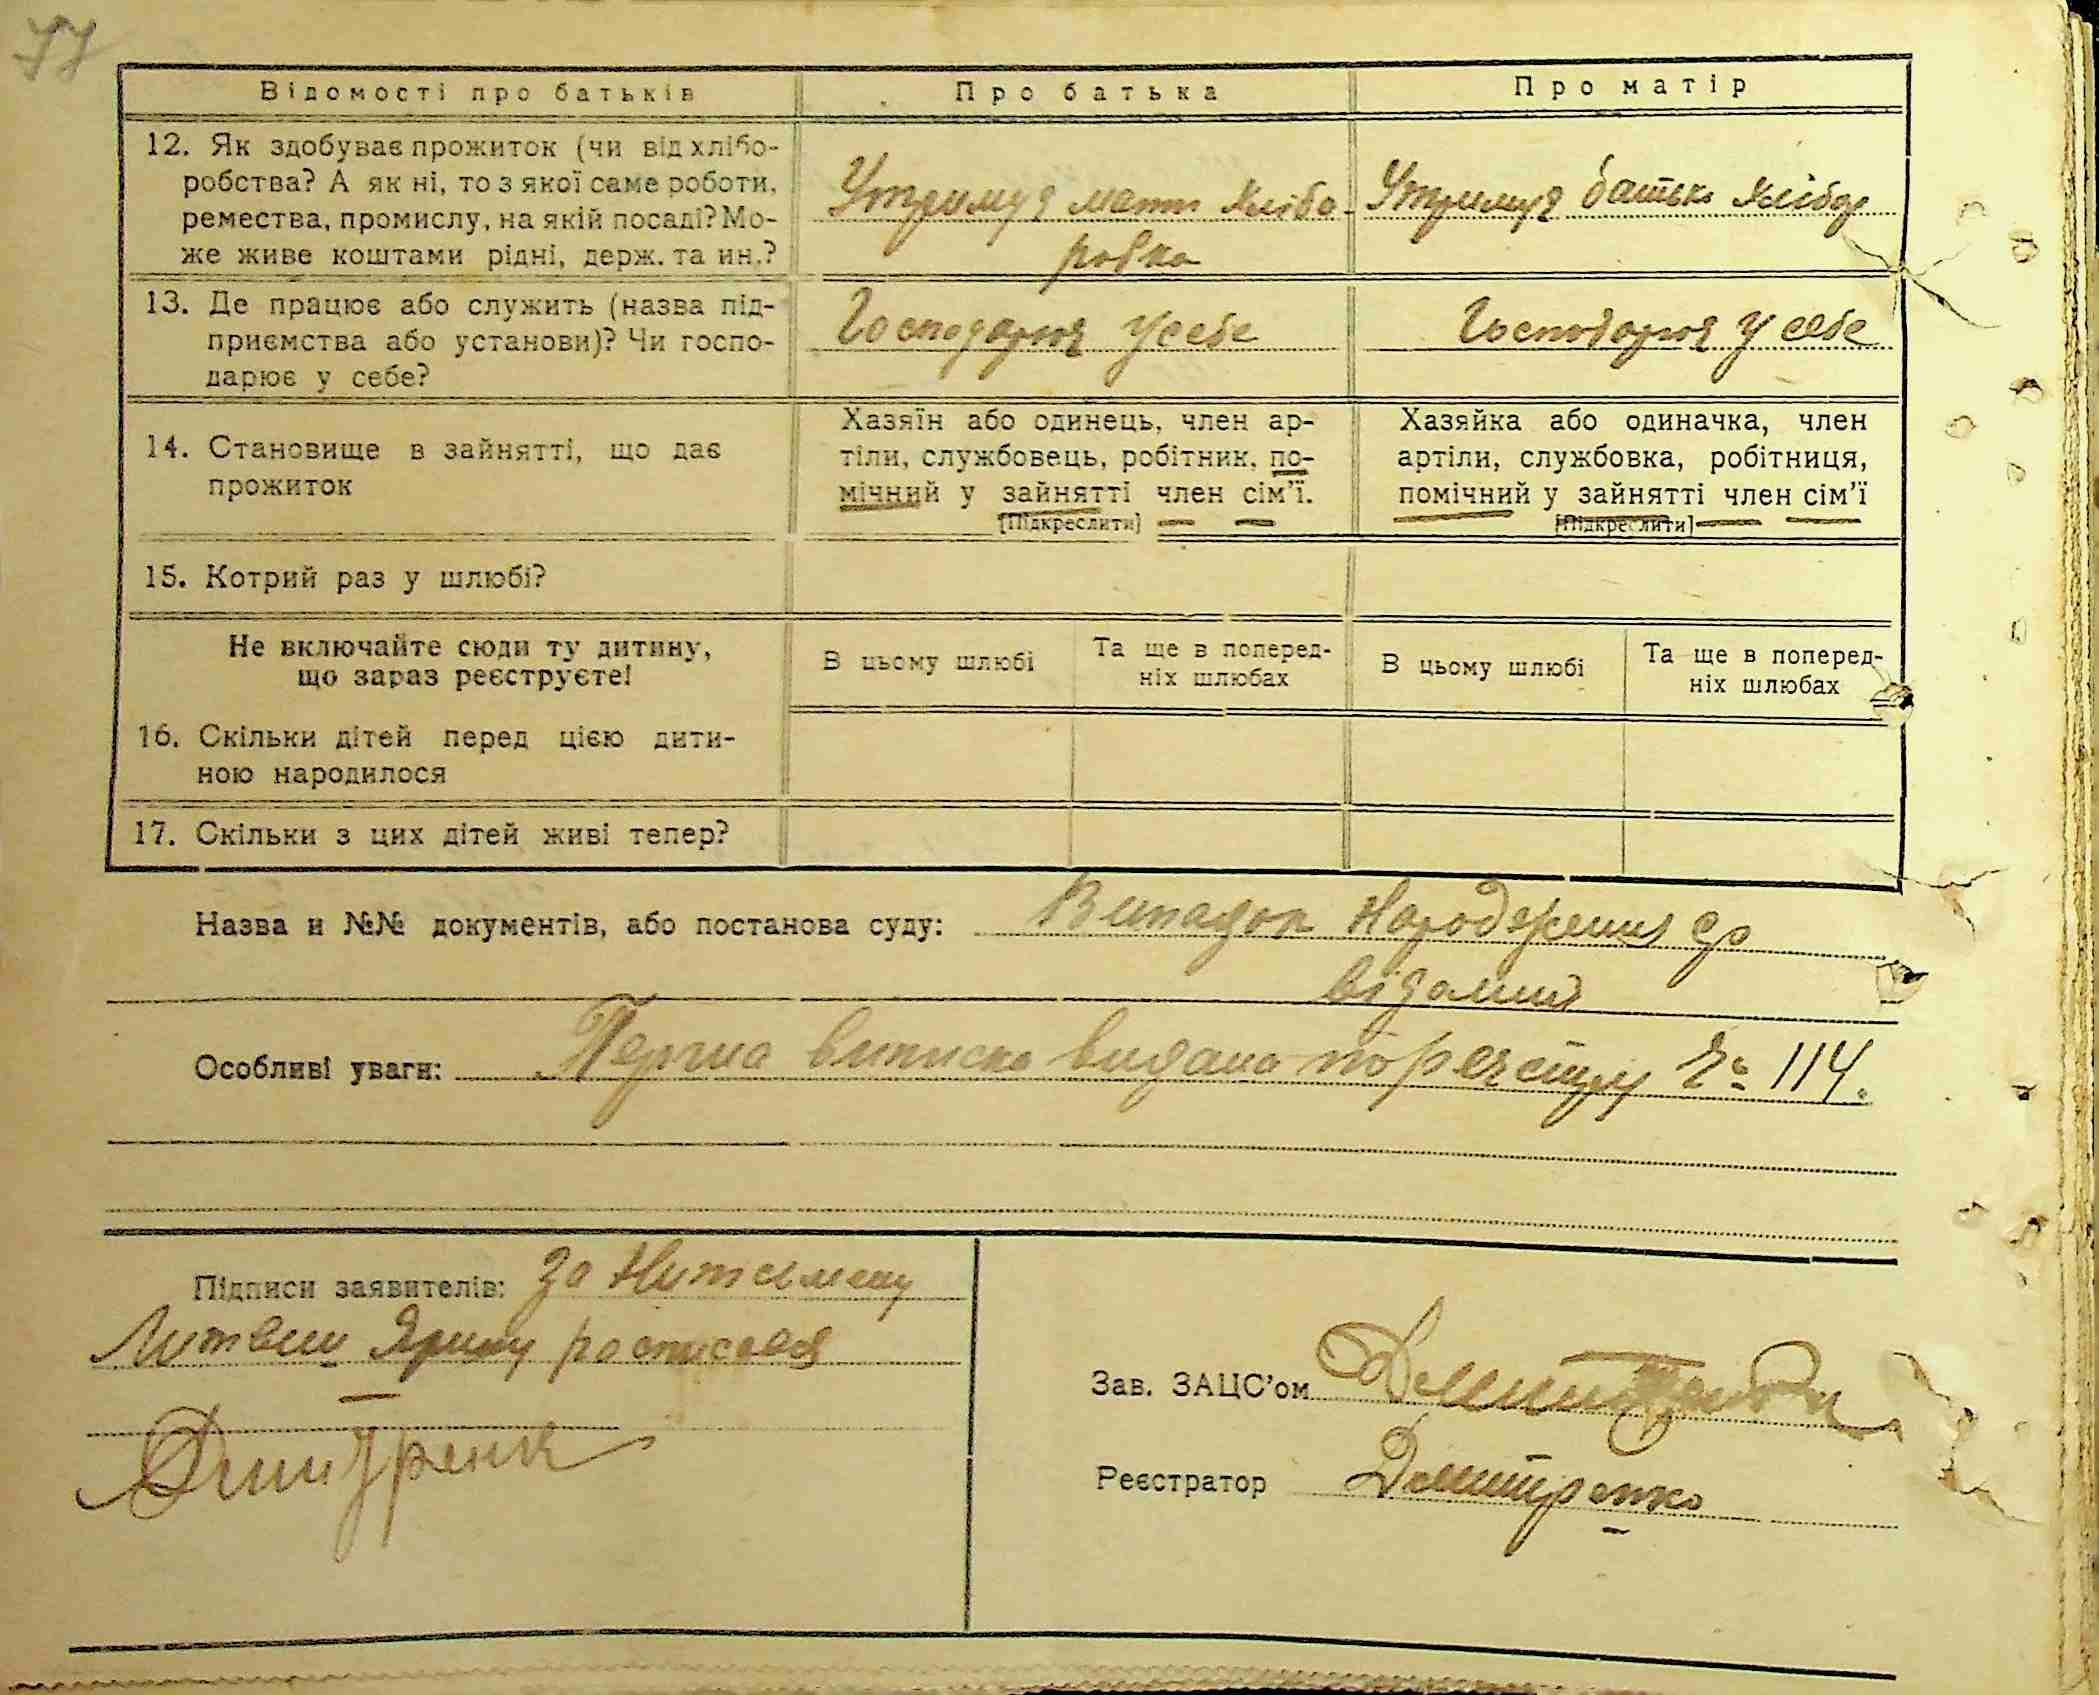 77
Відомості про батьків
Про батька
Про матір
12. Як здобуває прожиток (чи від хлібо-
робства? А як ні, то з якої саме роботи,
ремества, промислу, на якій посаді? Мо-
же живе коштами рідні, держ. та ин.?
Утримує мати хлібо-
робка
Утримує батько хлібор
13. Де працює або служить (назва під-
приємства або установи)? Чи госпо-
дарює у себе?
Господарює у себе
Господарює у себе
14. Становище в зайнятті, що дає
прожиток
Хазяїн або одинець, член ар-
тіли, службовець, робітник, по-
мічний у зайнятті член сім'ї.
[Підкреслити]
Хазяйка або одиначка, член
артіли, службовка, робітниця,
помічний у зайнятті член сім'ї
[Підкреслити]
15. Котрий раз у шлюбі?
Не включайте сюди ту дитину,
що зараз реєструєте!
В цьому шлюбі
Та ще в поперед-
ніх шлюбах
В цьому шлюбі
Та ще в поперед-
ніх шлюбах
16. Скільки дітей перед цією дити-
ною народилося
17. Скільки з цих дітей живі тепер?
Назва и №№ документів, або постанова суду: Випадок народження до
відомий
Особливі уваги: Перша виписка видана по реєстру № 114.
Підписи заявителів: За неписьмену
Литвин Ярину росписався
Дмитренк
Зав. ЗАЦС'ом
Реєстратор Дмитренко